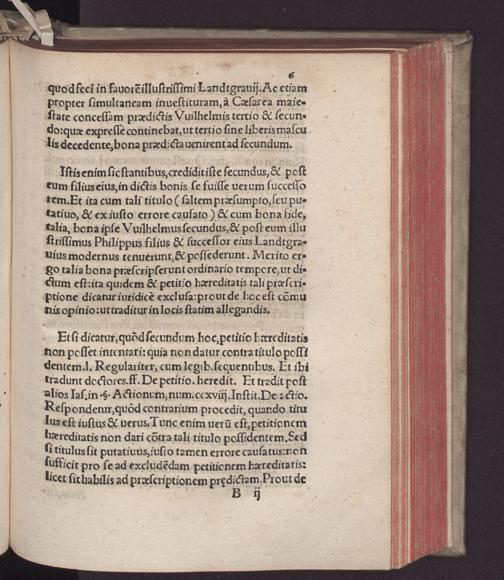 6
quod feci in fauorē illustrissimi Landtgrauij. Ac etiam
propter simultaneam inuestituram, à Cæsarea maie-
state concessam prædictis Vuilhelmis tertio & secun-
do: quæ expresse continebat, ut tertio sine liberis mascu
lis decedente, bona prædicta uenirent ad secundum.
Istis enim sic stantibus, credidit iste secundus, & post
eum filius eius, in dictis bonis se fuisse uerum successo
rem. Et ita cum tali titulo ( saltem præsumpto, seu pu-
tatiuo, & ex iusto errore causato ) & cum bona fide,
talia, bona ipse Vuilhelmus secundus, & post eum illu
strissimus Philippus filius & successor eius Landtgra-
uius modernus tenuerunt, & possederunt. Merito er-
go talia bona præscripserunt ordinario tempore, ut di-
ctum est: ita quidem & petitio hæreditatis tali præscri-
ptione dicatur iuridicè exclusa: prout de hoc est cōmu
nis opinio: ut traditur in locis statim allegandis.
Et si dicatur, quòd secundum hoc, petitio hæreditatis
non posset intentari: quia non datur contra titulo possi
dentem. l. Regulariter, cum legib. sequentibus. Et ibi
tradunt doctores. ff. De petitio. heredit. Et tradit post
alios Ias. in §. Actionum, num. ccxviij. Instit. De actio.
Respondetur, quòd contrarium procedit, quando titu
lus est iustus & uerus. Tunc enim uerū est, petitionem
hæreditatis non dari cōtra tali titulo possidentem. Sed
si titulus sit putatiuus, iusto tamen errore causatus: non
sufficit pro se ad excludēdam petitionem hæreditatis:
licet sit habilis ad præscriptionem prędictam. Prout de
B ij